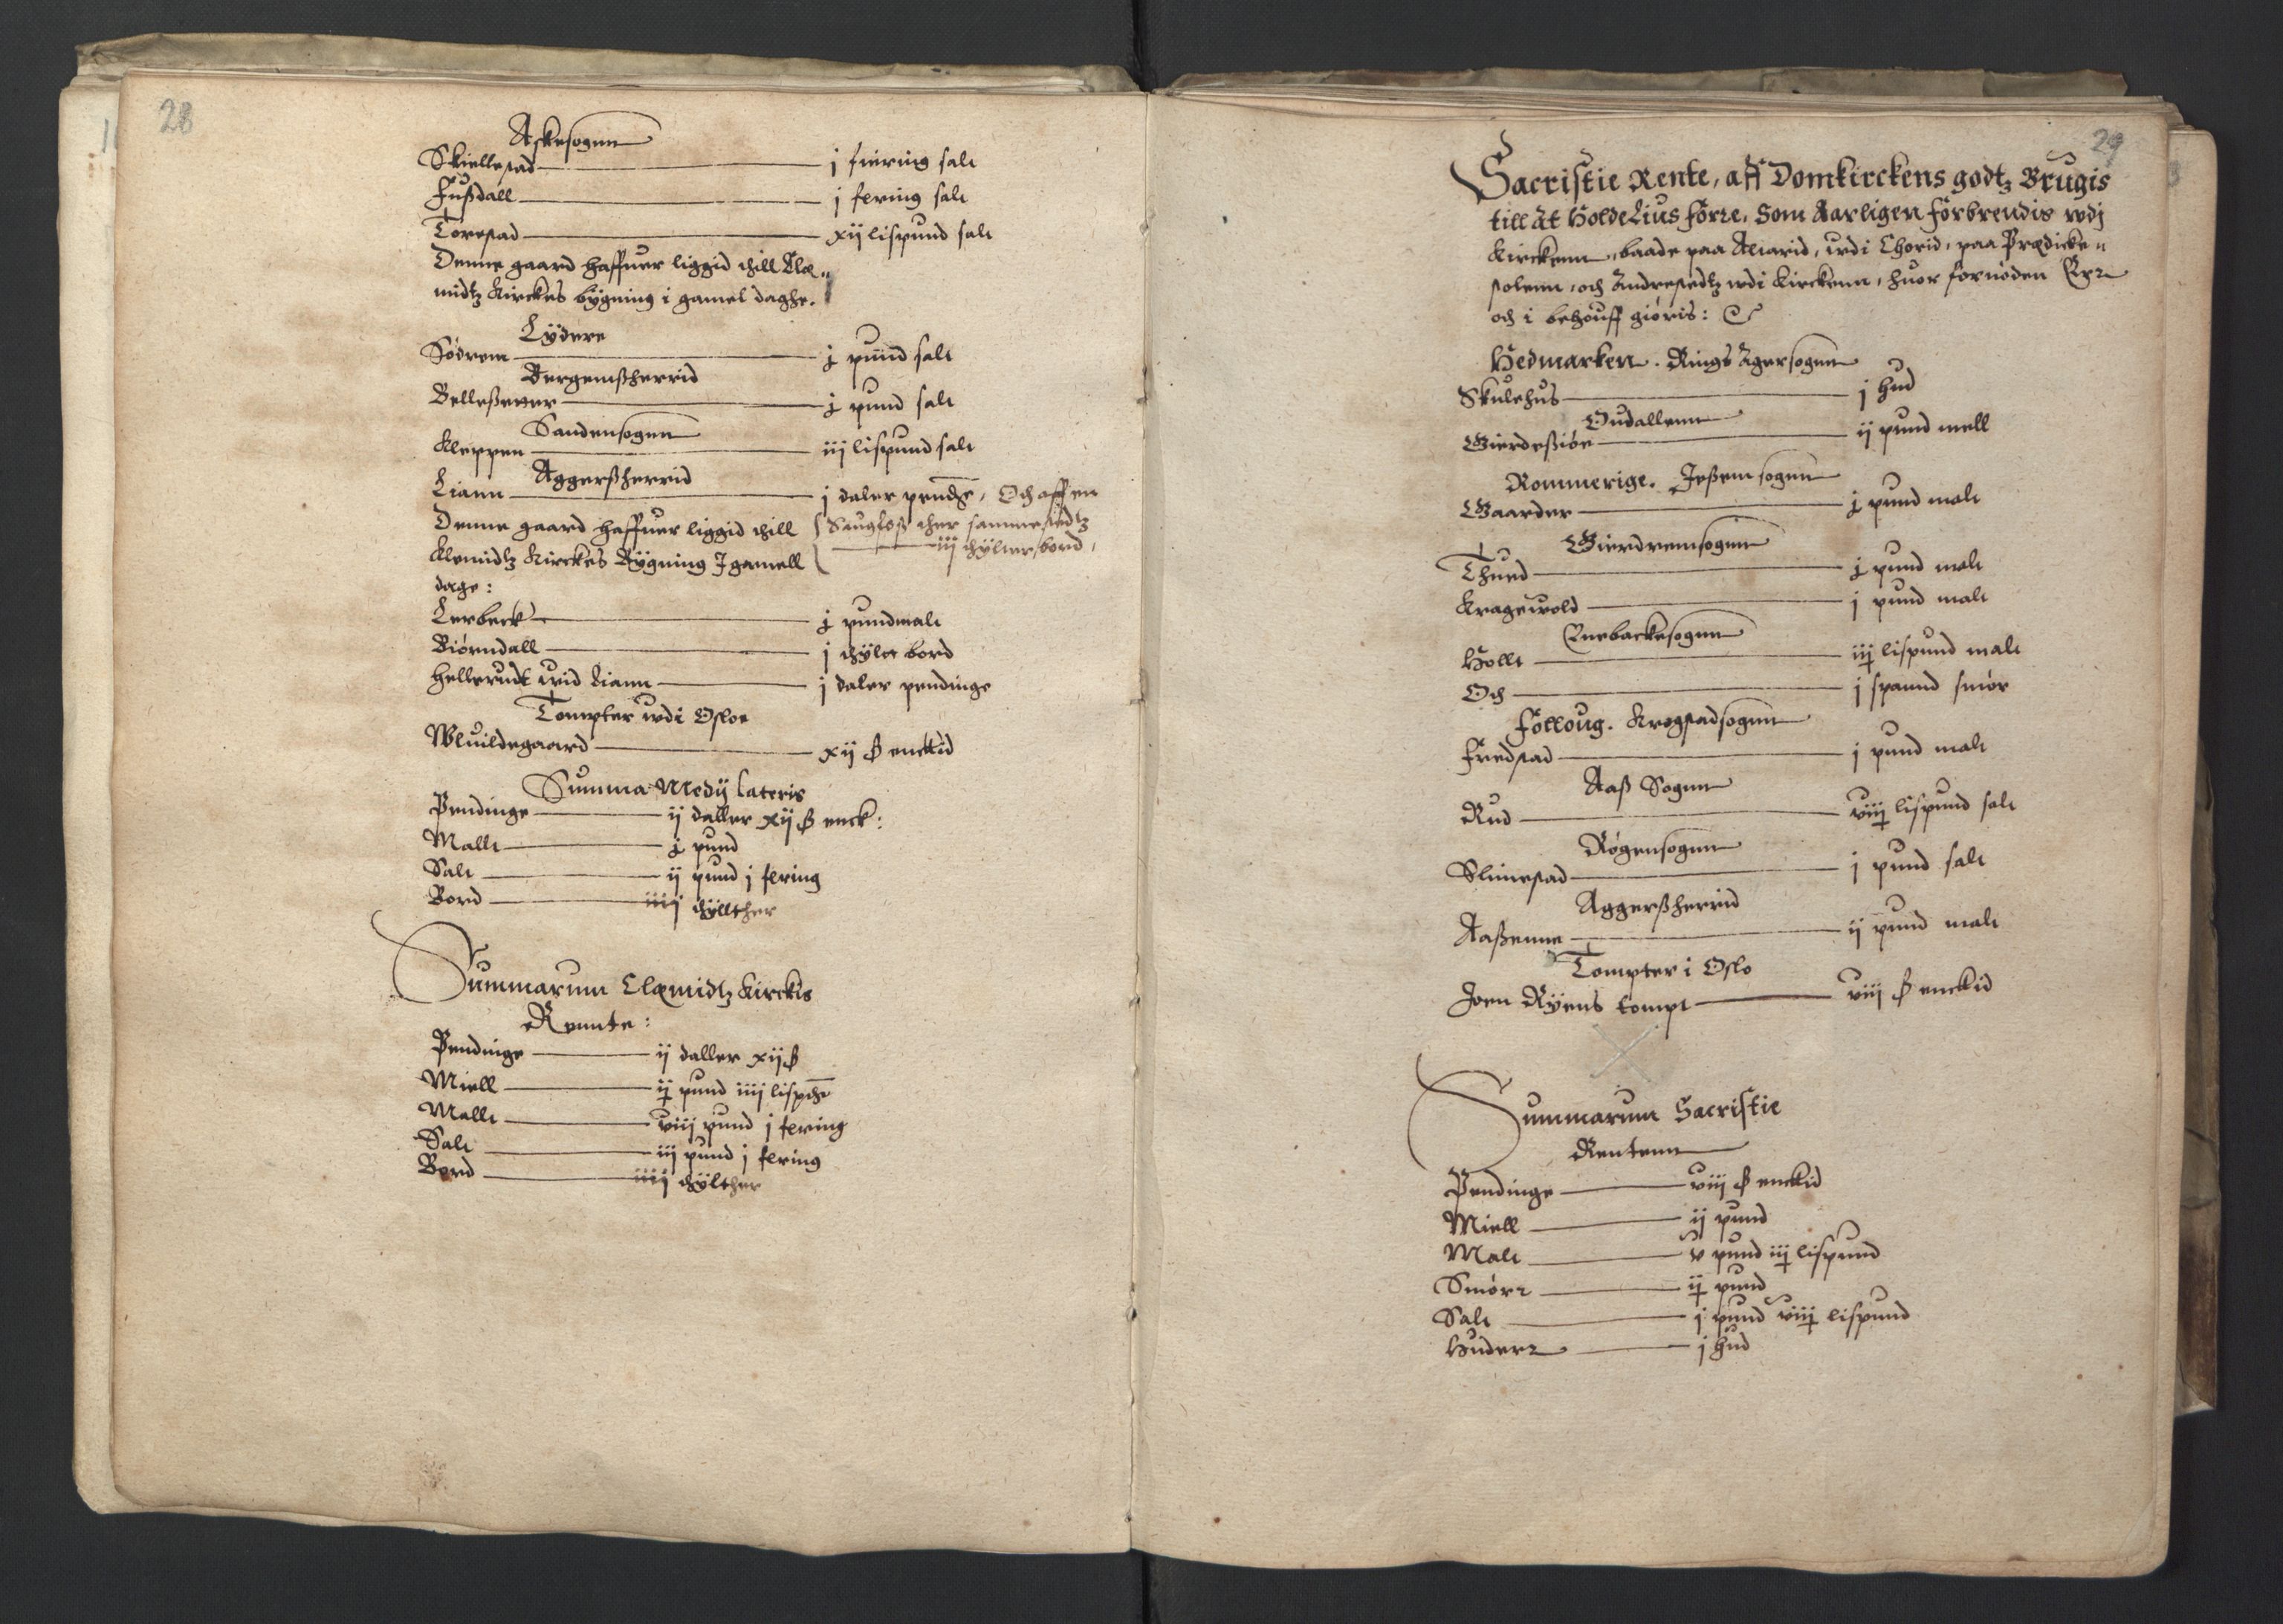 28
Askesognn
Skiellestad j fiering salt
Fußdall j fering salt
Torestad xij lispund salt
Denne gaard haffuer liggid thill Cle=
midtz Kirckes bygning i gamel daghe.
Lydere
Sódrem j pund salt
Bergemßherrid
Belleßetter j pund salt
Sandensogen
Kleppen iij lispund salt
Aggerßherrid
Liann j daler pendhe, Och aff en
Denne gaard haffuer liggid thill Saugfoß ther sammestedtz
Klemidtz Kirckes Bygning I gamell iij thylter bord,
dage:
Lerbeck j pund malt
Biörndall j thylt bord
Hellerudt wid Liann j daler pendinge
Tompter wdi Osloe
Wluildegaard xij ß enckid
Summa Medij lateris
Pendinge ij daller xij ß enck:
Mallt j pund
Salt ij pund j fering
Bord iiij thyllther
Summarum Clemidtz Kirckis
Rennte:
Pendinge ij daller xij ß
Miell ij pund iiij lispdhe
Mallt viij pund j fering
Salt iij pund j fering
Bord iiij thylther
29
Sacristie Rente, aff Domkirckens godtz Brugis
till at Holde Lius fórre, Som Aarligen fórbrendis wdj
Kirckenn, baade paa Altarid, wdi Chorid, paa Prædicke=
stolenn, och Andrestedtz wdi Kirckenn, huor fornöden Err
och i behouff gióris:
Hedmarken. Rings Agersogenn
Skulehus j hud
Oudallenn
Gierdeßióe ij pund mell
Rommerige. Jeßem sogenn
Gaarder j pund malt
Gierdremsogenn
Thued j pund malt
Kragewold j pund malt
Enebackesogenn
Hollt iij lispund malt
Och j spannd smór
Fólloug. Krogstadsogenn
Fredstad j pund malt
Aaß Sogenn
Rud viij lispund salt
Rógensogenn
Slimestad j pund salt
Aggerßherrid
Aaßenne ij pund malt
Tompter i Oslo
Joen Ryens tompt viij ß enckid
Summarum Sacristie
Rentenn
Pendinge viij ß enckid
Miell ij pund
Malt v pund iij lispund
Smórr ij pund
Salt j pund viij lispund
Huderr j hud